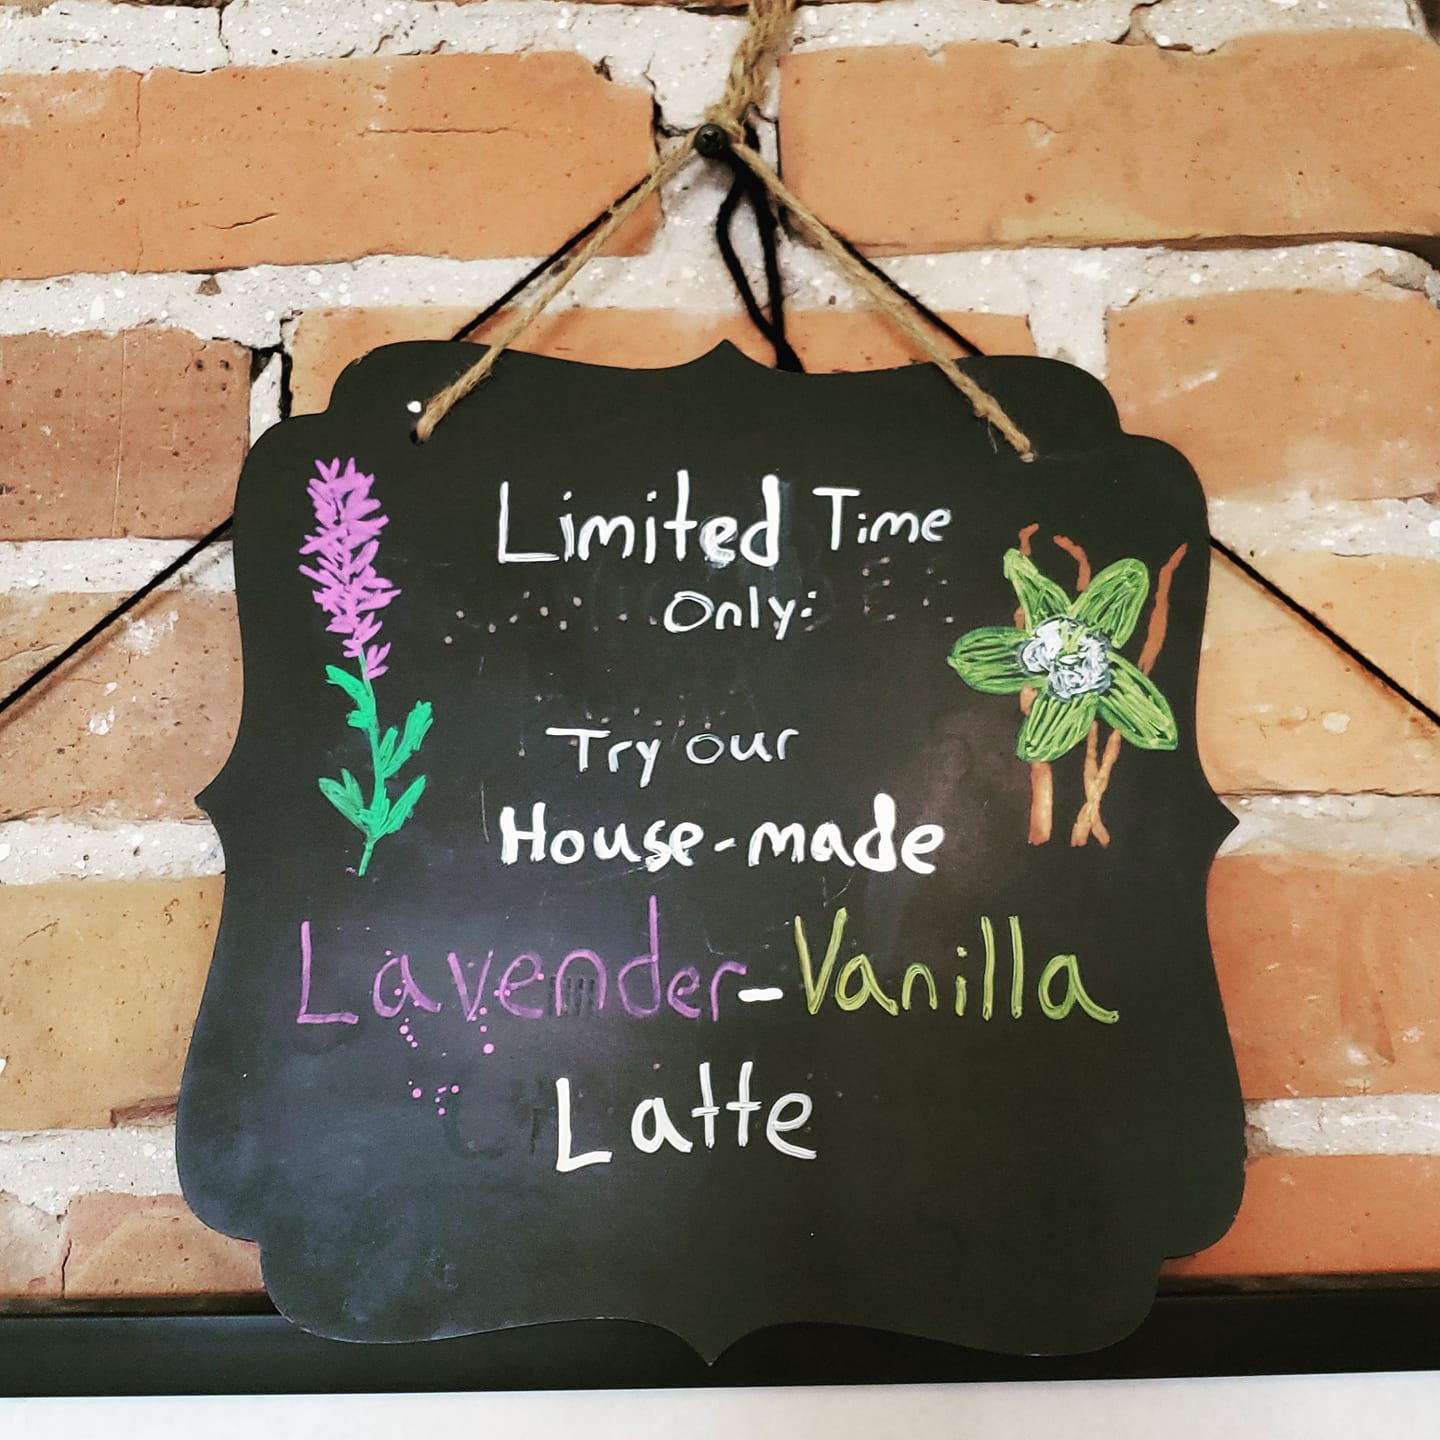 Limited Time
Only:
Try our
House-made
Lavender-Vanilla
Latte